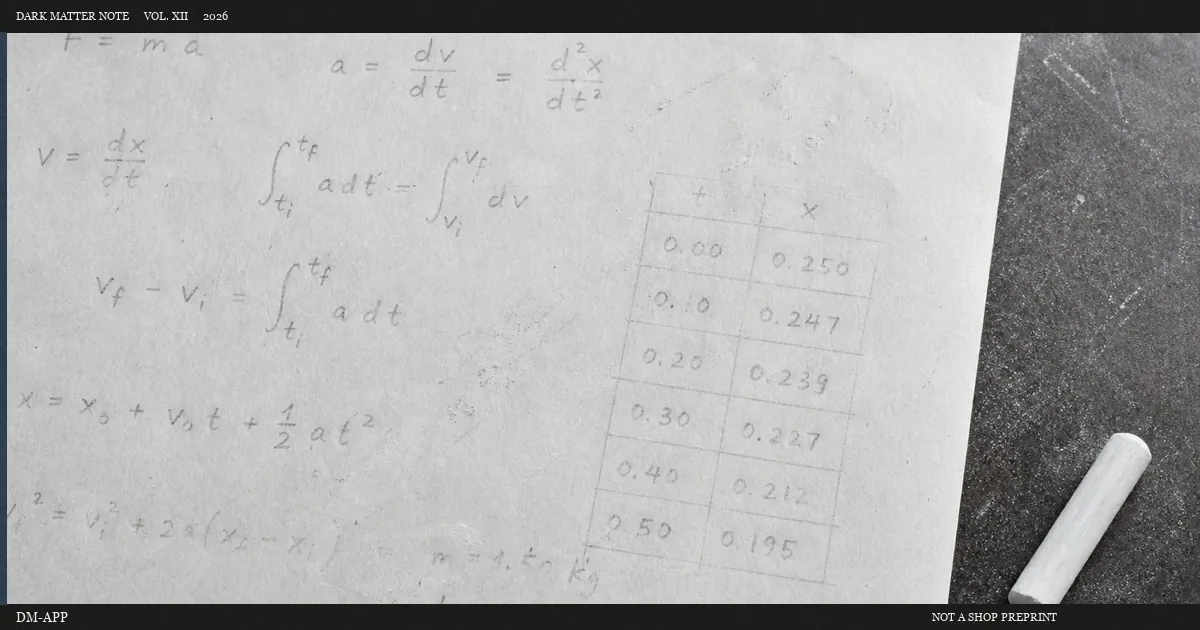 DARK MATTER NOTE VOL. XII 2026
F = m a
a = dv/dt = d²x/dt²
v = dx/dt
∫_{t_i}^{t_f} a dt = ∫_{v_i}^{v_f} dv
v_f - v_i = ∫_{t_i}^{t_f} a dt
x = x_0 + v_0 t + 1/2 a t²
v_f² = v_i² + 2a(x_f - x_i) =
m =
kg
t x
0.00 0.250
0.10 0.247
0.20 0.239
0.30 0.227
0.40 0.212
0.50 0.195
DM-APP
NOT A SHOP PREPRINT